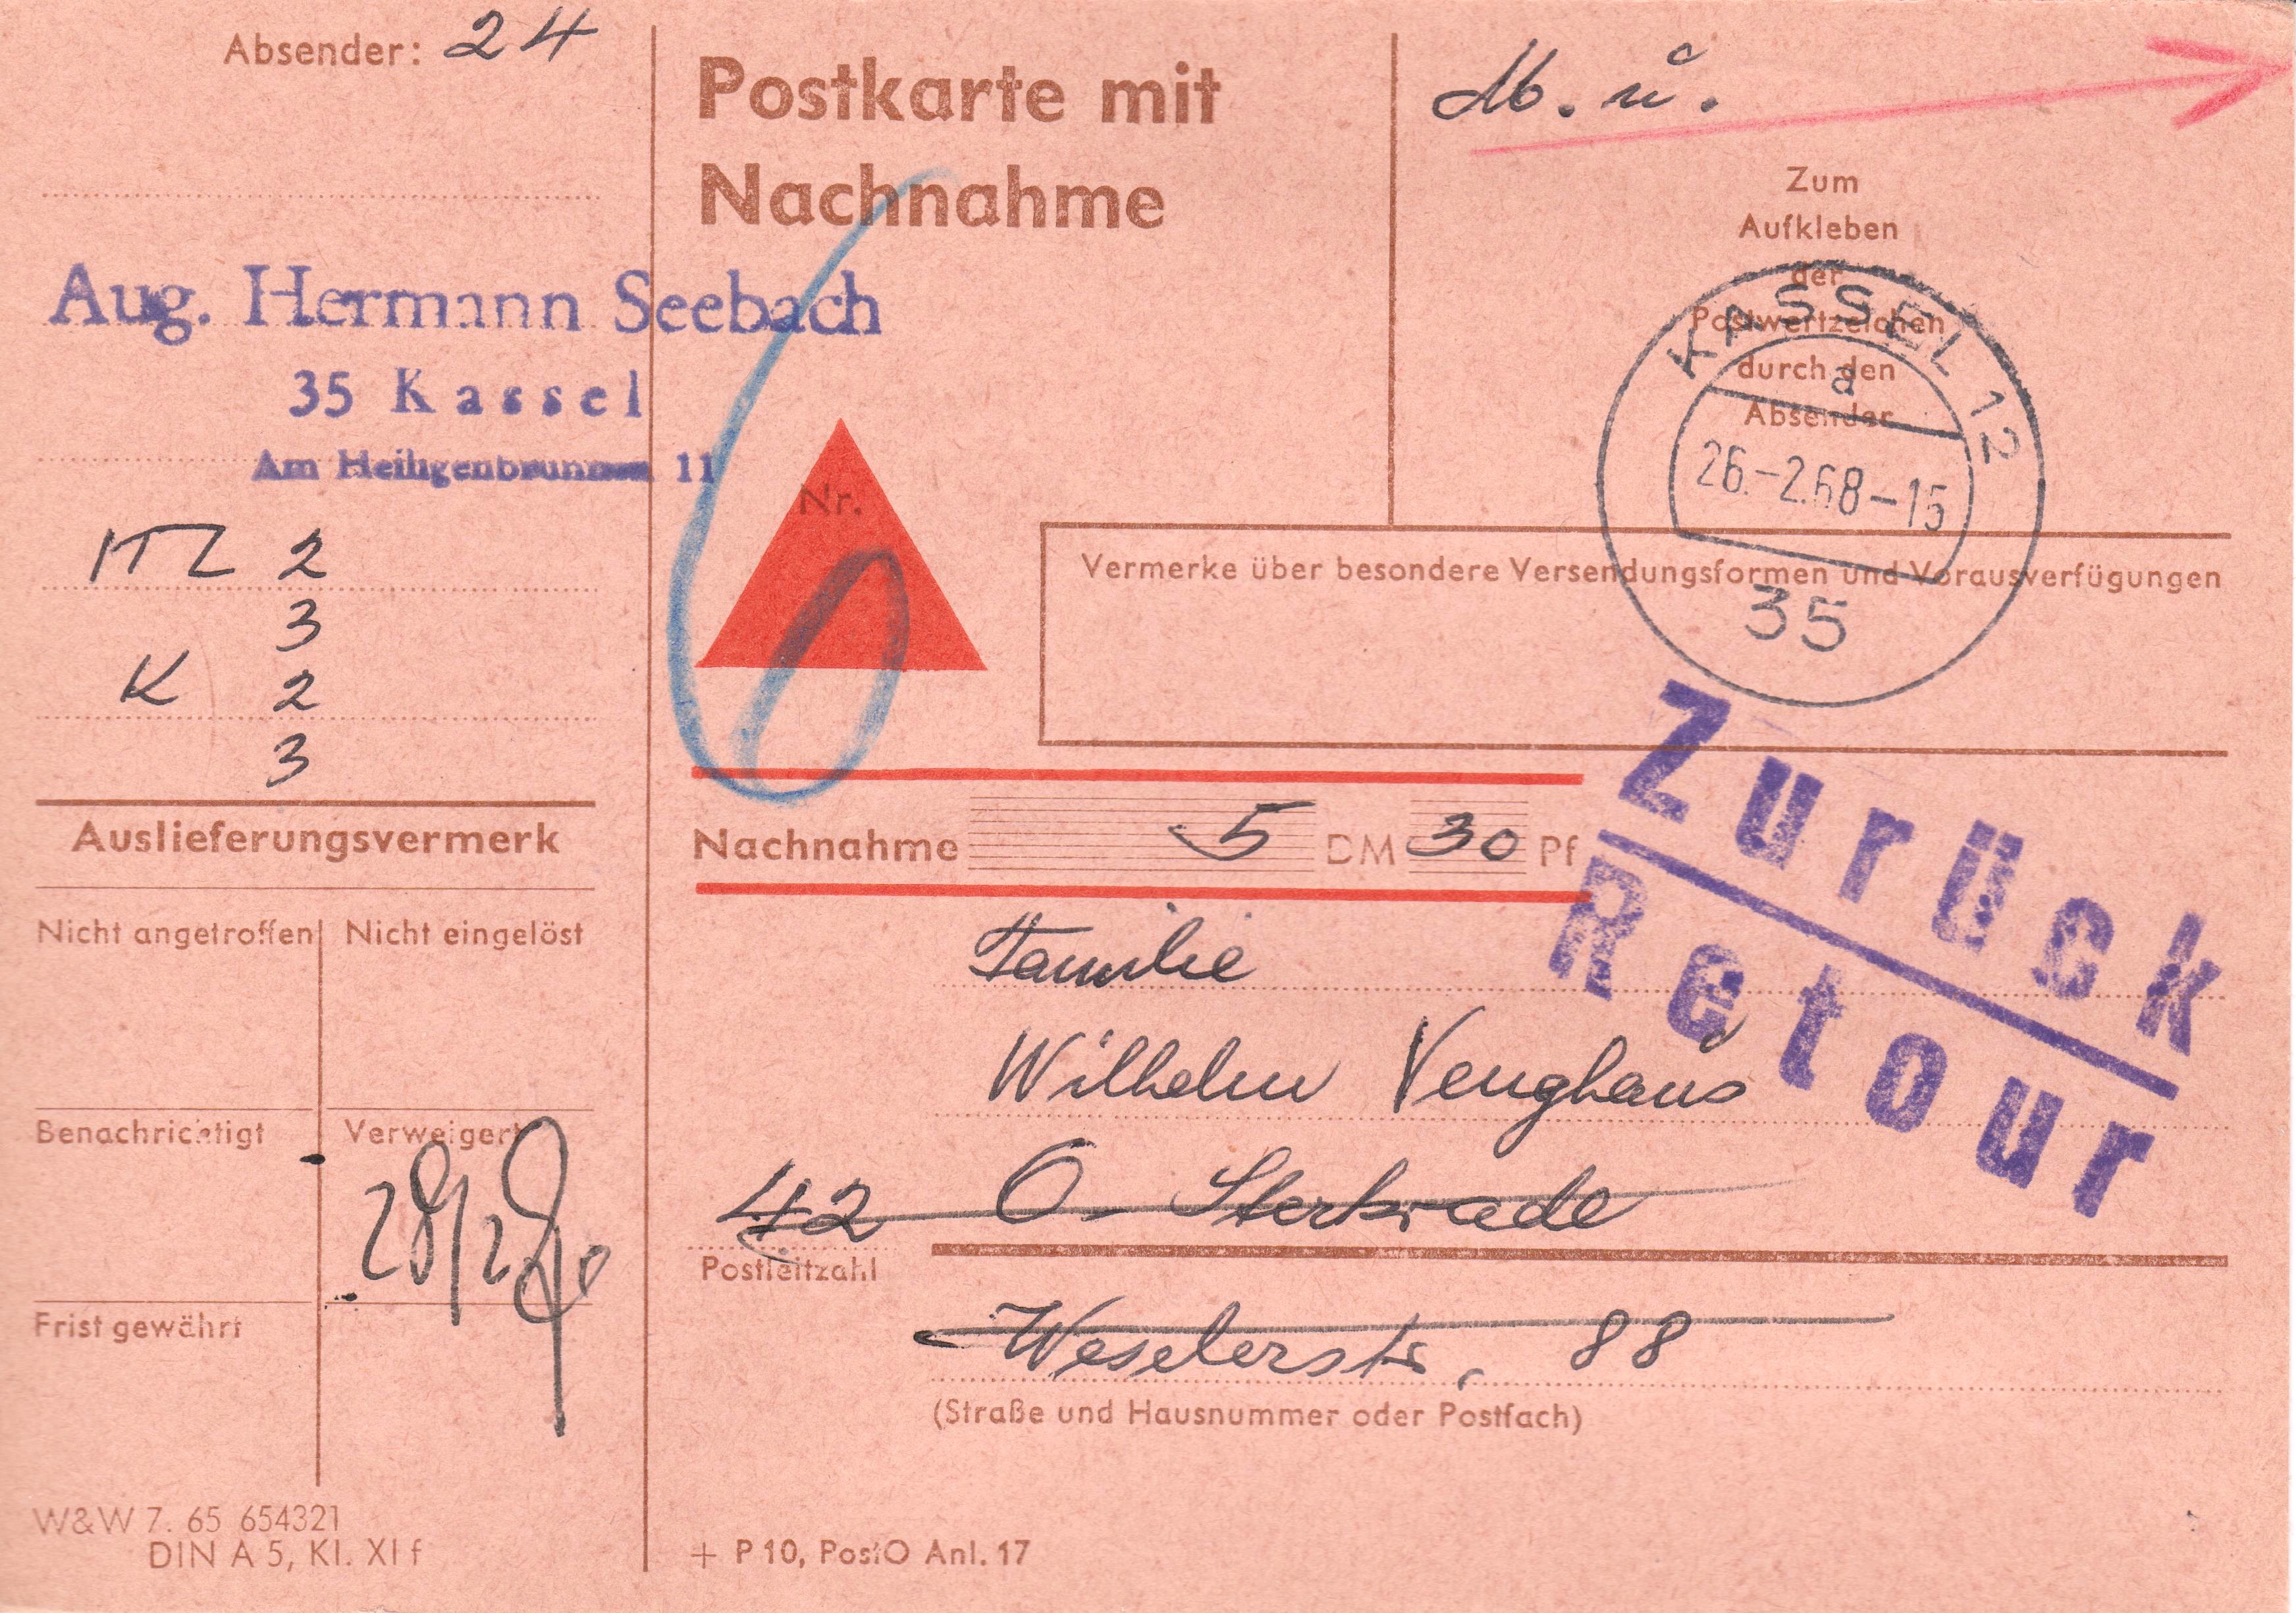 Absender: 24
Aug. Hermann Seebach
35 Kassel
Am Heiligenbrunnen 11
2
3
K 2
3
Auslieferungsvermerk
Nicht angetroffen
Nicht eingelöst
Benachrichtigt
Verweigert
28/2
Frist gewährt
W&W 7. 65 654321
DIN A 5, Kl. XI f
Postkarte mit
Nachnahme
Nr.
Zum
Aufkleben
der
Postwertzeichen
durch den
Absender
KASSEL 12
a
26.-2.68-15
35
Vermerke über besondere Versendungsformen und Vorausverfügungen
Zurück
Retour
Nachnahme 5 DM 30 Pf
Familie
Wilhelm Venghaus
42 O.-Sterkrade
Postleitzahl
Weselerstr. 88
(Straße und Hausnummer oder Postfach)
+ P 10, PostO Anl. 17